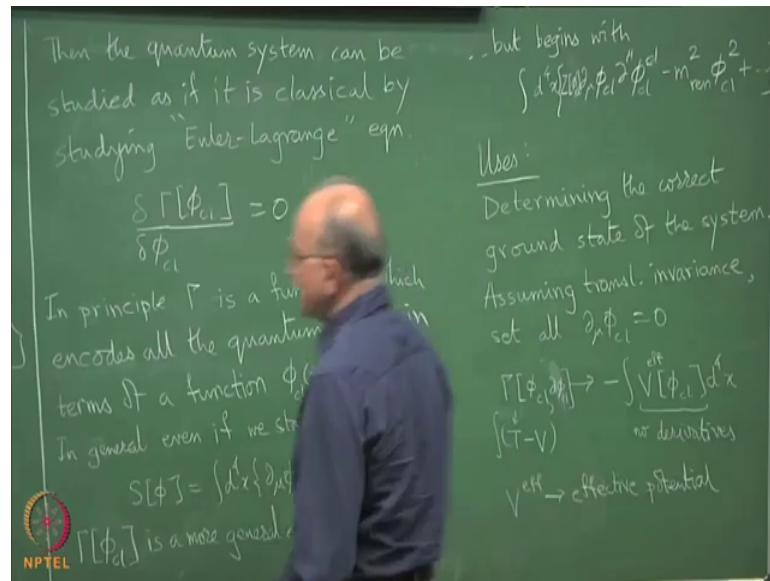 Then the quantum system can be
studied as if it is classical by
studying "Euler-Lagrange" eqn.
δ Γ[ϕ_cl] / δϕ_cl = 0
In principle Γ is a which
encodes all the quantum in
terms of a function ϕ_cl
In general even if we
S[ϕ] = ∫d⁴x{∂_μϕ
Γ[ϕ_cl] is a more general
...but begins with
∫d⁴x{ ∂_μϕ_cl ∂^μϕ_cl − m²_ren ϕ²_cl + ...
Uses:
Determining the correct
ground state of the system.
Assuming transl. invariance,
set all ∂_μϕ_cl = 0
Γ[ϕ_cl, ] → −∫V^eff[ϕ_cl]d⁴x
∫(T−V)
no derivatives
V^eff → effective potential
NPTEL